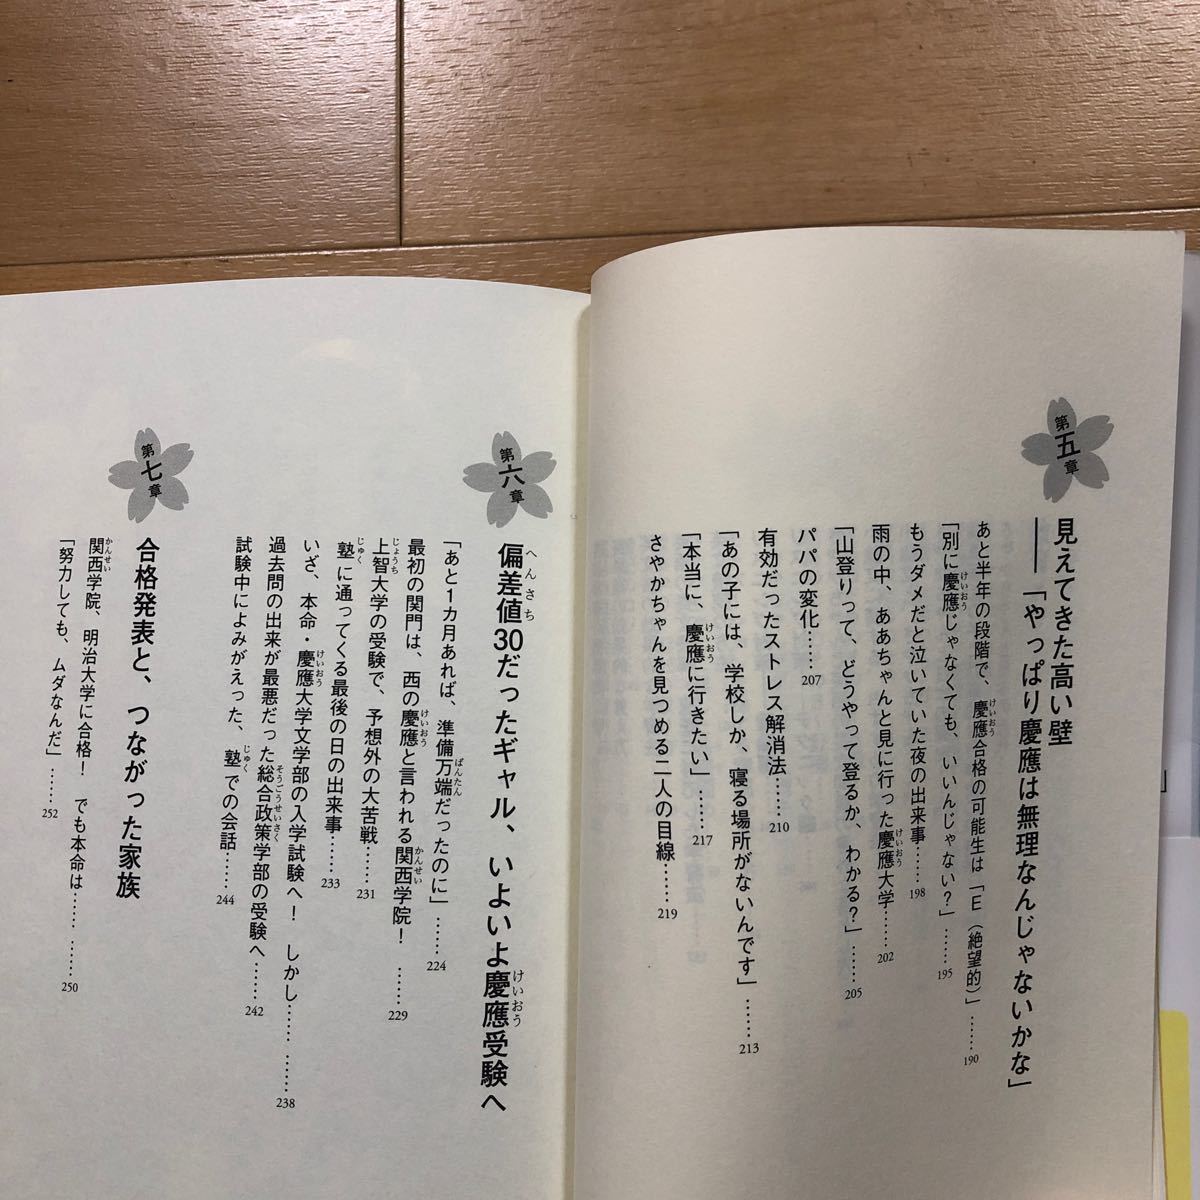 第五章
見えてきた高い壁
――「やっぱり慶應は無理なんじゃないかな」
あと半年の段階で、慶應合格の可能生は「E（絶望的）」……190
「別に慶應じゃなくても、いいんじゃない？」……195
もうダメだと泣いていた夜の出来事……198
雨の中、ああちゃんと見に行った慶應大学……202
「山登りって、どうやって登るか、わかる？」……205
パパの変化……207
有効だったストレス解消法……210
「あの子には、学校しか、寝る場所がないんです」……213
「本当に、慶應に行きたい」……217
さやかちゃんを見つめる二人の目線……219
第六章
偏差値30だったギャル、いよいよ慶應受験へ
「あと1カ月あれば、準備万端だったのに」……224
最初の関門は、西の慶應と言われる関西学院！……229
上智大学の受験で、予想外の大苦戦……231
塾に通ってくる最後の日の出来事……233
いざ、本命・慶應大学文学部の入学試験へ！　しかし…………238
過去問の出来が最悪だった総合政策学部の受験へ……242
試験中によみがえった、塾での会話……244
第七章
合格発表と、つながった家族
関西学院、明治大学に合格！　でも本命は…………250
「努力しても、ムダなんだ」……252